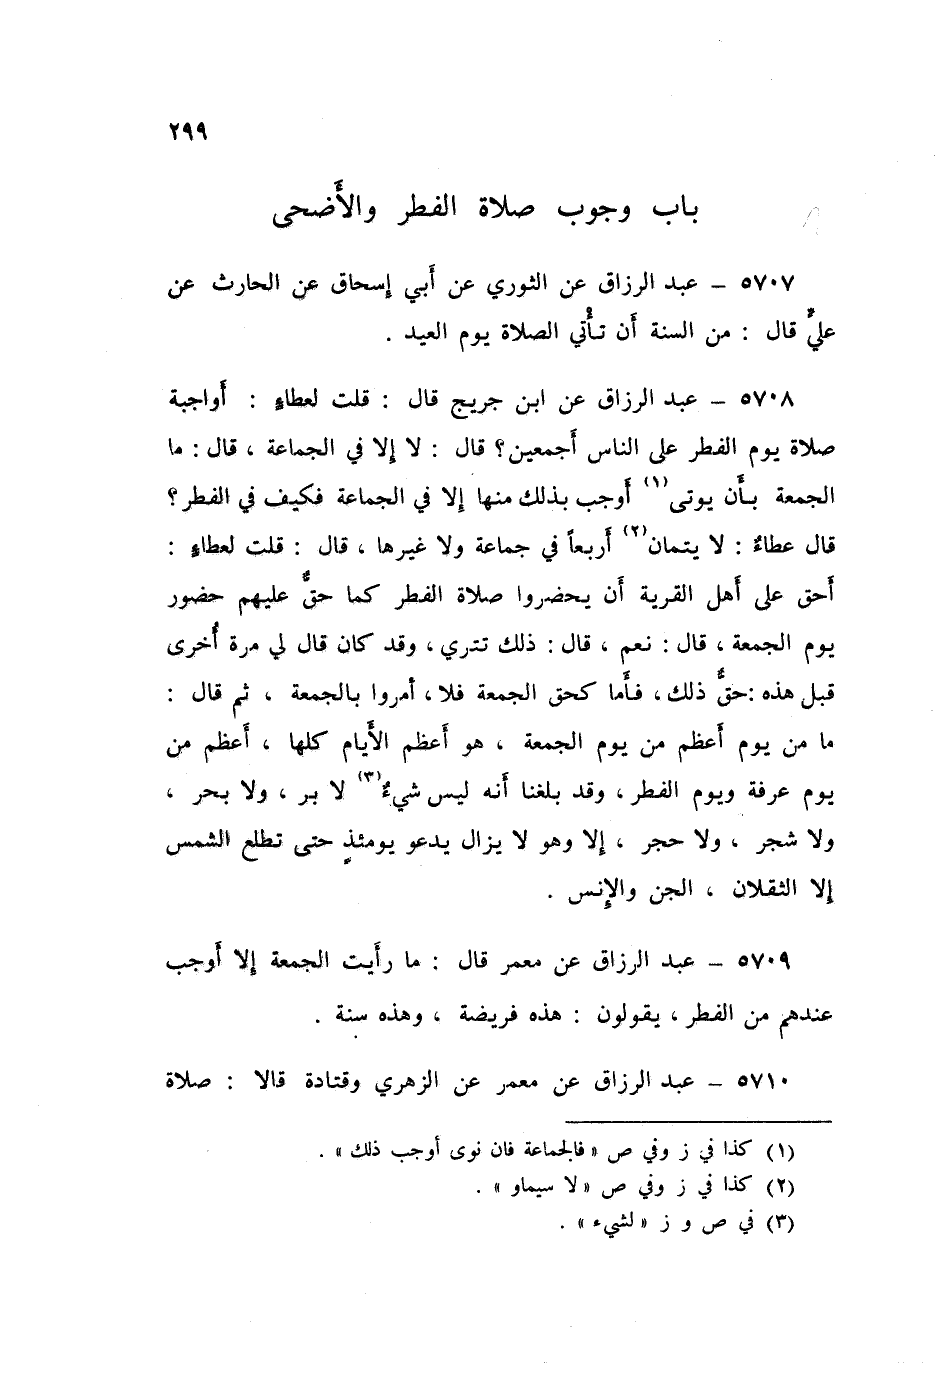 ٢٩٩
باب وجوب صلاة الفطر والأَضحى
٥٧٠٧ – عبد الرزاق عن الثوري عن أَبي إسحاق عن الحارث عن
عليٍّ قال : من السنة أَن تأْتي الصلاة يوم العيد .
٥٧٠٨ – عبد الرزاق عن ابن جريج قال : قلت لعطاءٍ : أَواجبة
صلاة يوم الفطر على الناس أَجمعين؟ قال : لا إلا في الجماعة ، قال : ما
الجمعة بأَن يوتى(١) أَوجب بذلك منها إلا في الجماعة فكيف في الفطر؟
قال عطاءٌ : لا يتمان(٢) أَربعاً في جماعة ولا غيرها ، قال : قلت لعطاءٍ :
أَحق على أَهل القرية أَن يحضروا صلاة الفطر كما حقٌّ عليهم حضور
يوم الجمعة ، قال : نعم ، قال : ذلك تتري ، وقد كان قال لي مرة أُخرى
قبل هذه : حقٌّ ذلك ، فأَما كحق الجمعة فلا ، أمروا بالجمعة ، ثم قال :
ما من يوم أَعظم من يوم الجمعة ، هو أَعظم الأَيام كلها ، أَعظم من
يوم عرفة ويوم الفطر ، وقد بلغنا أَنه ليس شيءٌ(٣) لا بر ، ولا بحر ،
ولا شجر ، ولا حجر ، إلا وهو لا يزال يدعو يومئذٍ حتى تطلع الشمس
إلا الثقلان ، الجن والإِنس .
٥٧٠٩ – عبد الرزاق عن معمر قال : ما رأَيت الجمعة إلا أَوجب
عندهم من الفطر ، يقولون : هذه فريضة ، وهذه سنة .
٥٧١٠ – عبد الرزاق عن معمر عن الزهري وقتادة قالا : صلاة
(١) كذا في ز وفي ص «فالجماعة فان نوى أوجب ذلك» .
(٢) كذا في ز وفي ص «لا سيماو» .
(٣) في ص و ز «لشيء» .